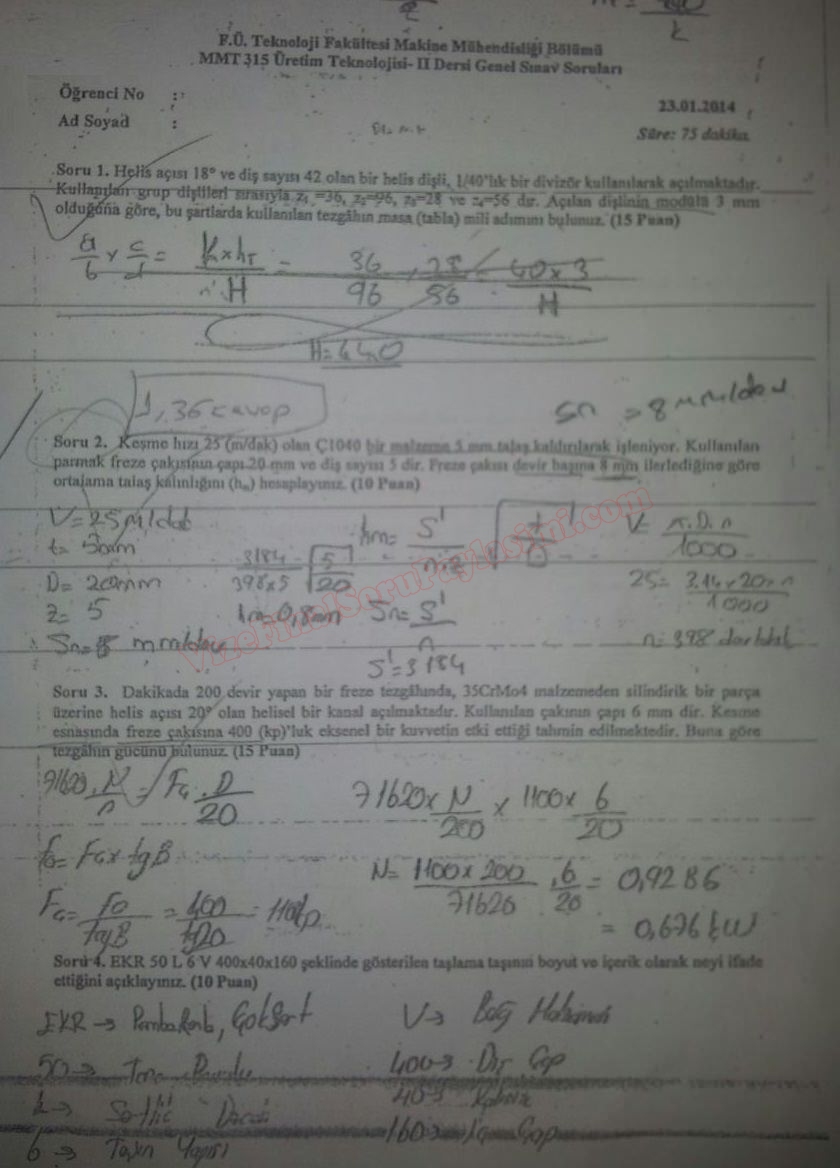 F.Ü. Teknoloji Fakültesi Makine Mühendisliği Bölümü
MMT 315 Üretim Teknolojisi- II Dersi Genel Sınav Soruları
Öğrenci No :
23.01.2014
Ad Soyad :
Süre: 75 dakika
Soru 1. Helis açısı 18° ve diş sayısı 42 olan bir helis dişli, 1/40'lık bir divizör kullanılarak açılmaktadır.
Kullanılan grup dişlileri sırasıyla z₁ =36, z₂=96, z₃=28 ve z₄=56 dır. Açılan dişlinin modülü 3 mm
olduğuna göre, bu şartlarda kullanılan tezgâhın masa (tabla) mili adımını bulunuz. (15 Puan)
a/b x c/d = Kxhт/H = 36/96 . 28/56 = 40x3/H
H=640
1,36 cevap
Sn = 8 mm/dev
Soru 2. Keşme hızı 25 (m/dak) olan Ç1040 bir malzeme 5 mm talaş kaldırılarak işleniyor. Kullanılan
parmak freze çakısının çapı 20 mm ve diş sayısı 5 dir. Freze çakısı devir başına 8 mm ilerlediğine göre
ortalama talaş kalınlığını (hₘ) hesaplayınız. (10 Puan)
V=25 m/dak hm= S'/n.z √t/D V= π.D.n/1000
t= 5mm 3184/398x5 √5/20
D= 20mm 25= 3.14x20xn/1000
z= 5 hm=0,8mm Sn= S'/n
Sn=8 mm/dev S'=3184 n=398 dev/dak
VizeFinalSoruPaylasimi.com
Soru 3. Dakikada 200 devir yapan bir freze tezgâhında, 35CrMo4 malzemeden silindirik bir parça
üzerine helis açısı 20° olan helisel bir kanal açılmaktadır. Kullanılan çakının çapı 6 mm dir. Kesme
esnasında freze çakısına 400 (kp)'luk eksenel bir kuvvetin etki ettiği tahmin edilmektedir. Buna göre
tezgâhın gücünü bulunuz. (15 Puan)
71620.N/n = FG.D/20 71620x N/200 x 1100x 6/20
fo= FGx tgB N= 1100x200/71620 .6/20 = 0,9286
FG= fo/tgB = 400/tg20 = 1100kp = 0,676 kW
Soru 4. EKR 50 L 6 V 400x40x160 şeklinde gösterilen taşlama taşının boyut ve içerik olarak neyi ifade
ettiğini açıklayınız. (10 Puan)
EKR → Pembe Renk, Çok Sert V→ Bağ
50→ 400→ Dış Çap
L→ Sertlik 40→
6→ Taşın Yapısı 160→ Çap